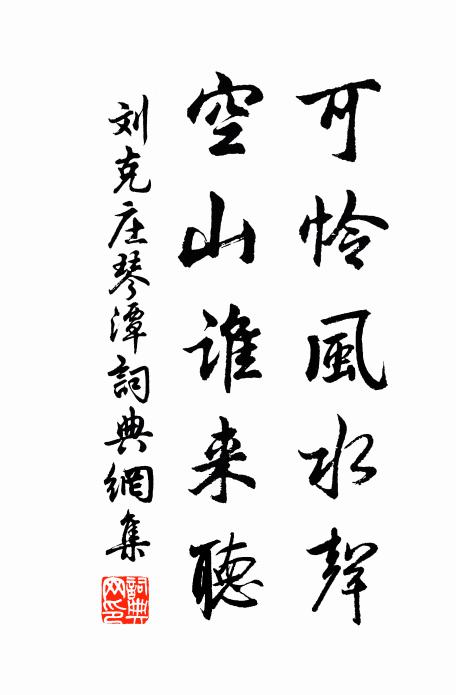 可怜風水聲
空山谁来聽
刘克庄琴潭詞典網集